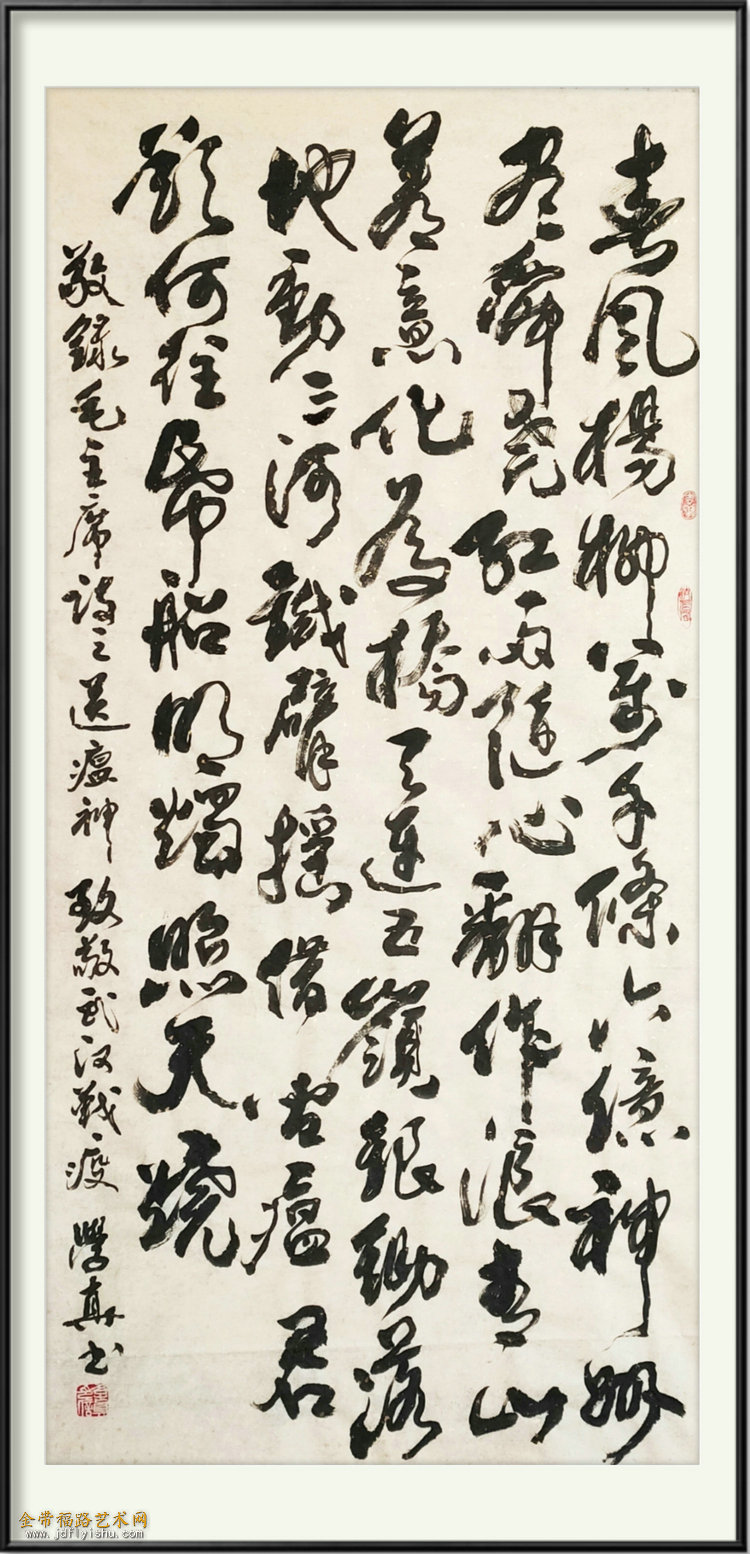 春風楊柳萬千條六億神州
盡舜堯紅雨隨心翻作浪青山
着意化為橋天連五嶺銀鋤落
地動三河鐵臂搖借問瘟君
欲何往帋船明燭照天燒
敬錄毛主席詩之送瘟神 致敬武汉戰疫 學真书
金带福路艺术网
www.jdflyishu.com